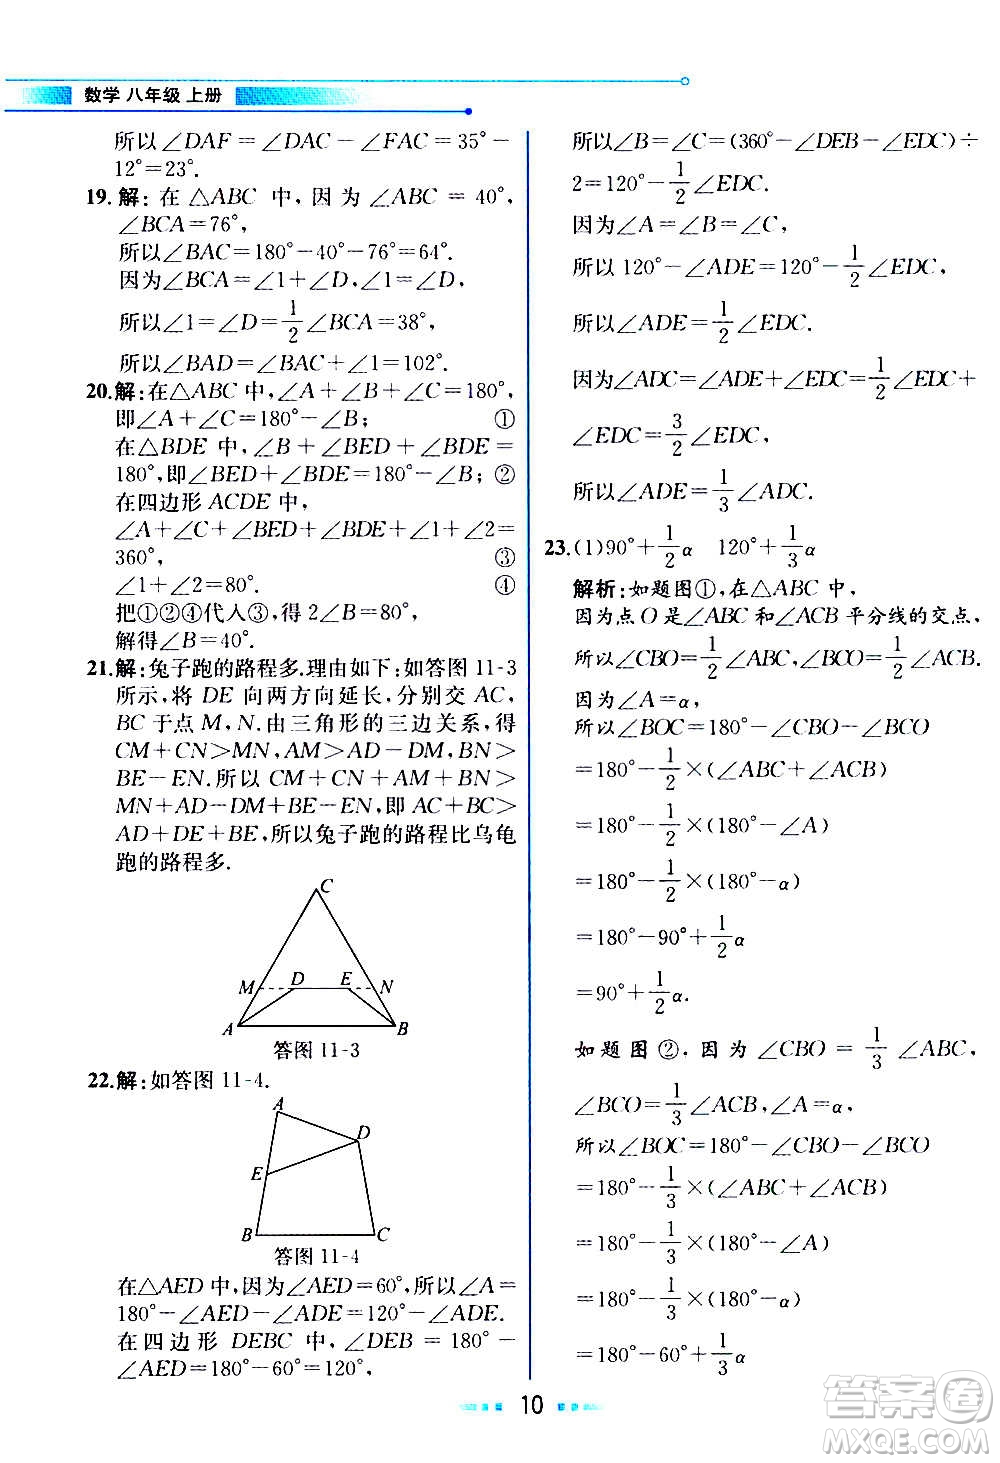 数学 八年级 上册
所以∠DAF=∠DAC-∠FAC=35°-
12°=23°.
19.解:在△ABC中,因为∠ABC=40°,
∠BCA=76°,
所以∠BAC=180°-40°-76°=64°.
因为∠BCA=∠1+∠D,∠1=∠D,
所以∠1=∠D=1/2∠BCA=38°,
所以∠BAD=∠BAC+∠1=102°.
20.解:在△ABC中,∠A+∠B+∠C=180°,
即∠A+∠C=180°-∠B; ①
在△BDE中,∠B+∠BED+∠BDE=
180°,即∠BED+∠BDE=180°-∠B; ②
在四边形ACDE中,
∠A+∠C+∠BED+∠BDE+∠1+∠2=
360°, ③
∠1+∠2=80°. ④
把①②④代入③,得2∠B=80°,
解得∠B=40°.
21.解:兔子跑的路程多.理由如下:如答图11-3
所示,将DE向两方向延长,分别交AC,
BC于点M,N.由三角形的三边关系,得
CM+CN>MN,AM>AD-DM,BN>
BE-EN.所以CM+CN+AM+BN>
MN+AD-DM+BE-EN,即AC+BC>
AD+DE+BE,所以兔子跑的路程比乌龟
跑的路程多.
C
M D E N
A B
答图11-3
22.解:如答图11-4.
A
D
E
B C
答图11-4
在△AED中,因为∠AED=60°,所以∠A=
180°-∠AED-∠ADE=120°-∠ADE.
在四边形DEBC中,∠DEB=180°-
∠AED=180°-60°=120°,
所以∠B=∠C=(360°-∠DEB-∠EDC)÷
2=120°-1/2∠EDC.
因为∠A=∠B=∠C,
所以120°-∠ADE=120°-1/2∠EDC,
所以∠ADE=1/2∠EDC.
因为∠ADC=∠ADE+∠EDC=1/2∠EDC+
∠EDC=3/2∠EDC,
所以∠ADE=1/3∠ADC.
23.(1)90°+1/2α 120°+1/3α
解析:如题图①,在△ABC中,
因为点O是∠ABC和∠ACB平分线的交点,
所以∠CBO=1/2∠ABC,∠BCO=1/2∠ACB.
因为∠A=α,
所以∠BOC=180°-∠CBO-∠BCO
=180°-1/2×(∠ABC+∠ACB)
=180°-1/2×(180°-∠A)
=180°-1/2×(180°-α)
=180°-90°+1/2α
=90°+1/2α.
如题图②.因为∠CBO=1/3∠ABC,
∠BCO=1/3∠ACB,∠A=α,
所以∠BOC=180°-∠CBO-∠BCO
=180°-1/3×(∠ABC+∠ACB)
=180°-1/3×(180°-∠A)
=180°-1/3×(180°-α)
=180°-60°+1/3α
10
答案圈
MXQE.COM